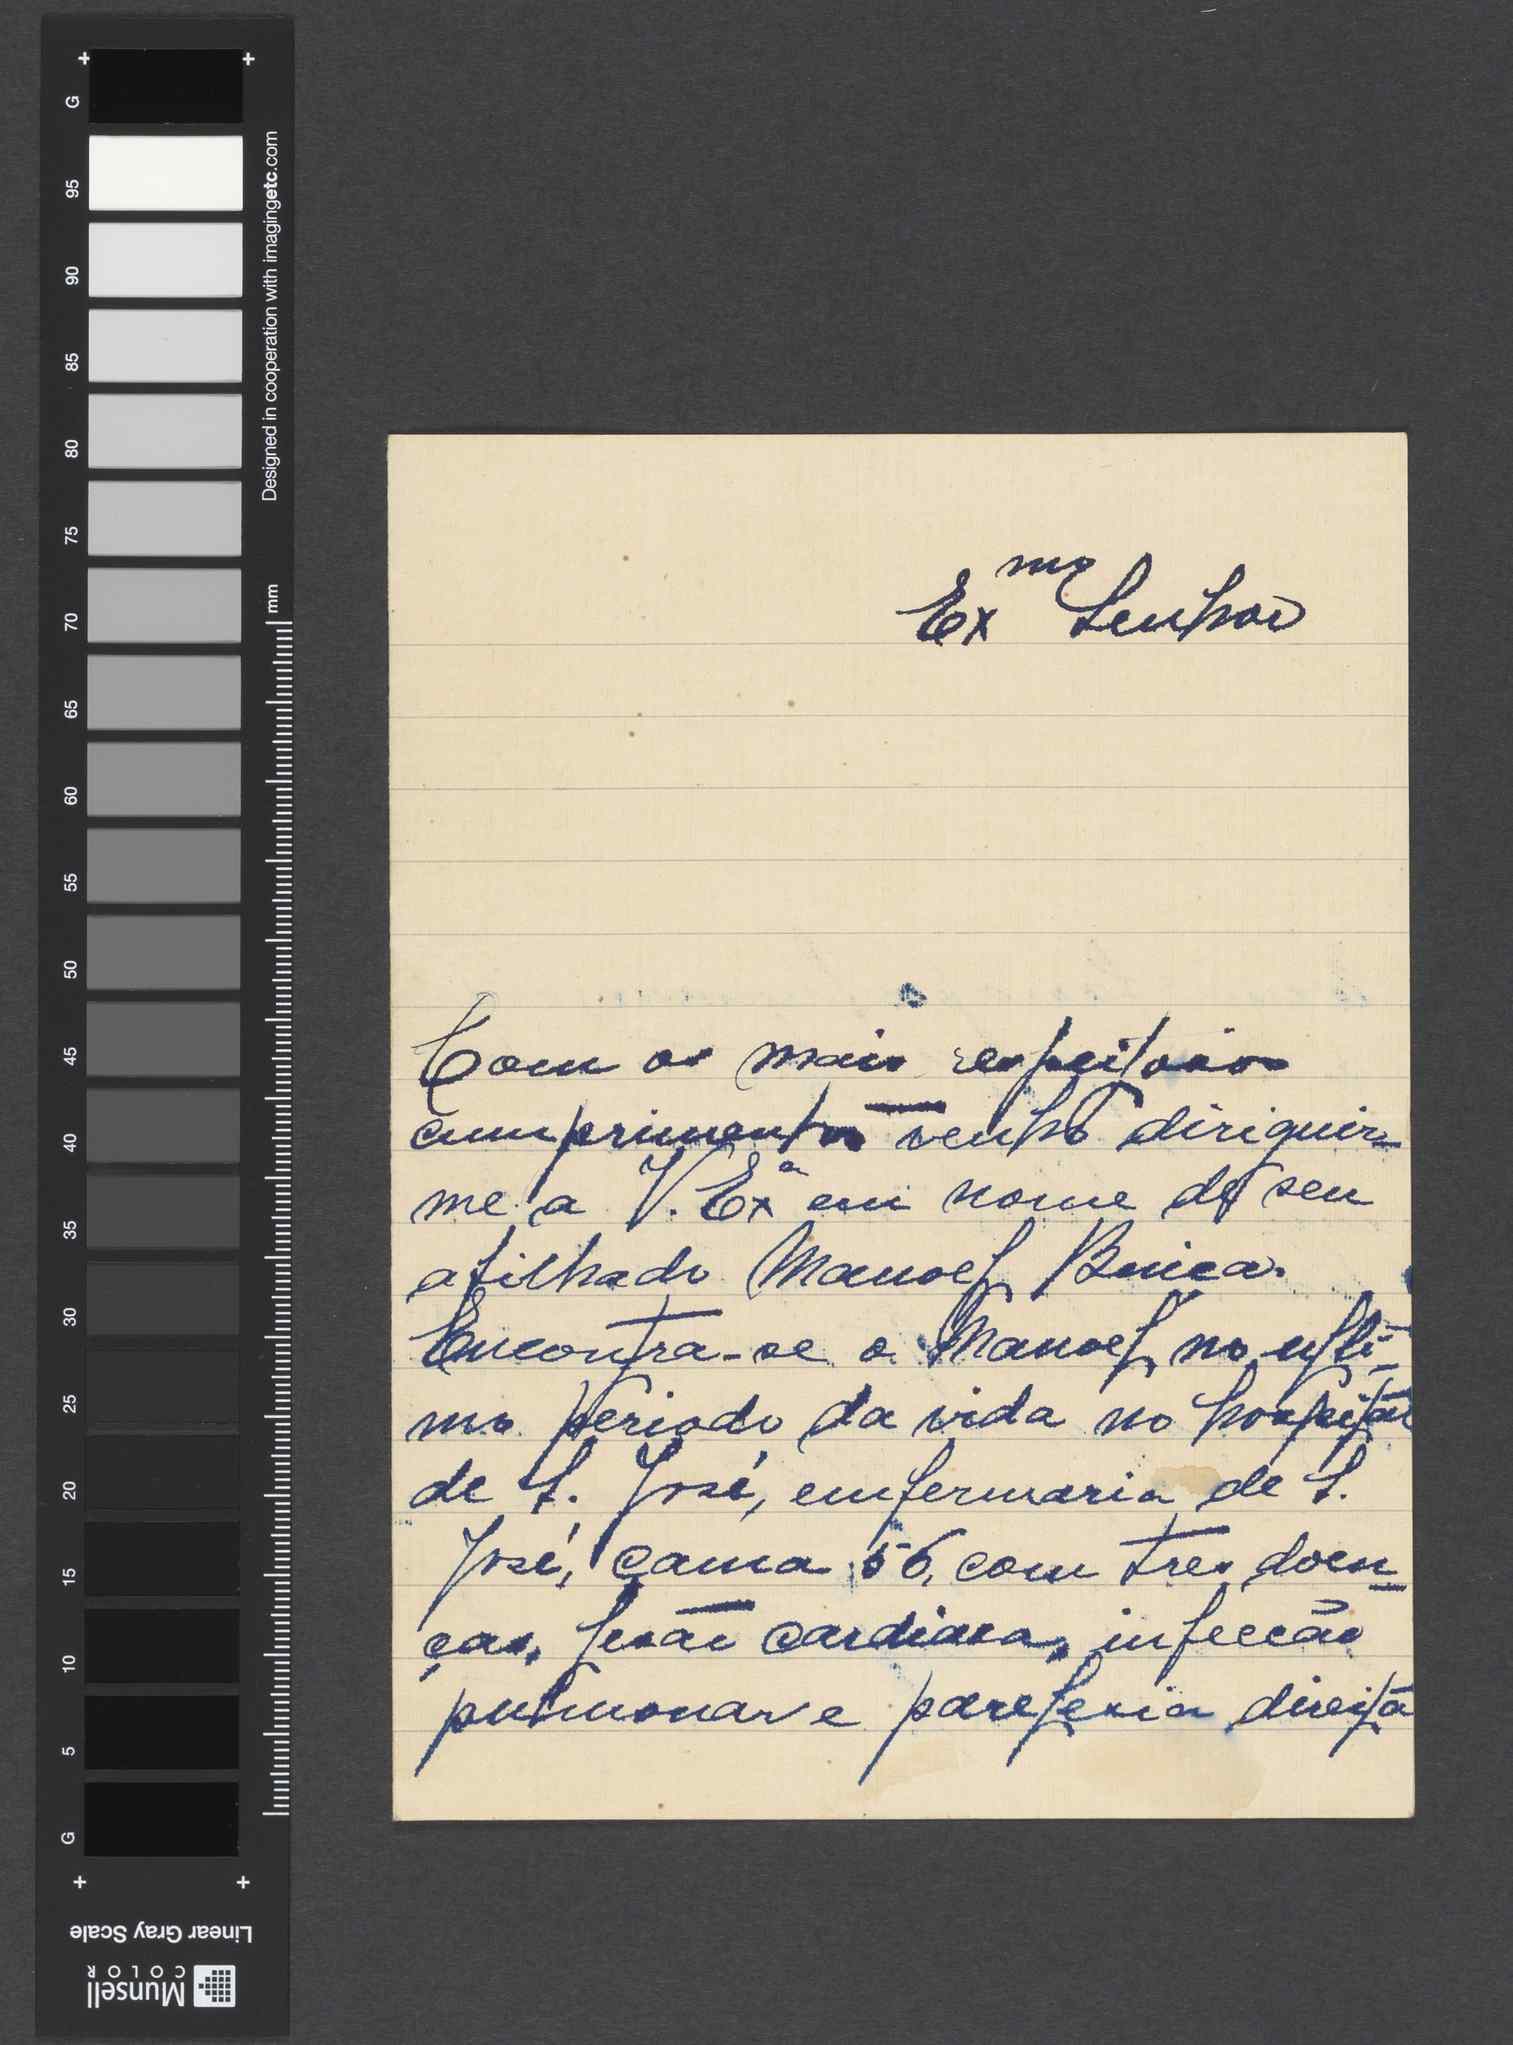 Ex mo Senhor
Com os mais respeitosos
cumprimentos venho diriguir-
me a V. Exª em nome do seu
afilhado Manoel Buica.
Encontra-se o Manoel no ulti-
mo periodo da vida no hospital
de S. José, emfermaria de S.
José, cama 56, com tres doen-
ças, lesão cardiaca, infecção
pulmonar e parelesia direita
G
95
90
85
80
75
70
65
60
55
50
45
40
35
30
25
20
15
10
5
G
Designed in cooperation with imagingetc.com
mm
Linear Gray Scale
Munsell
COLOR